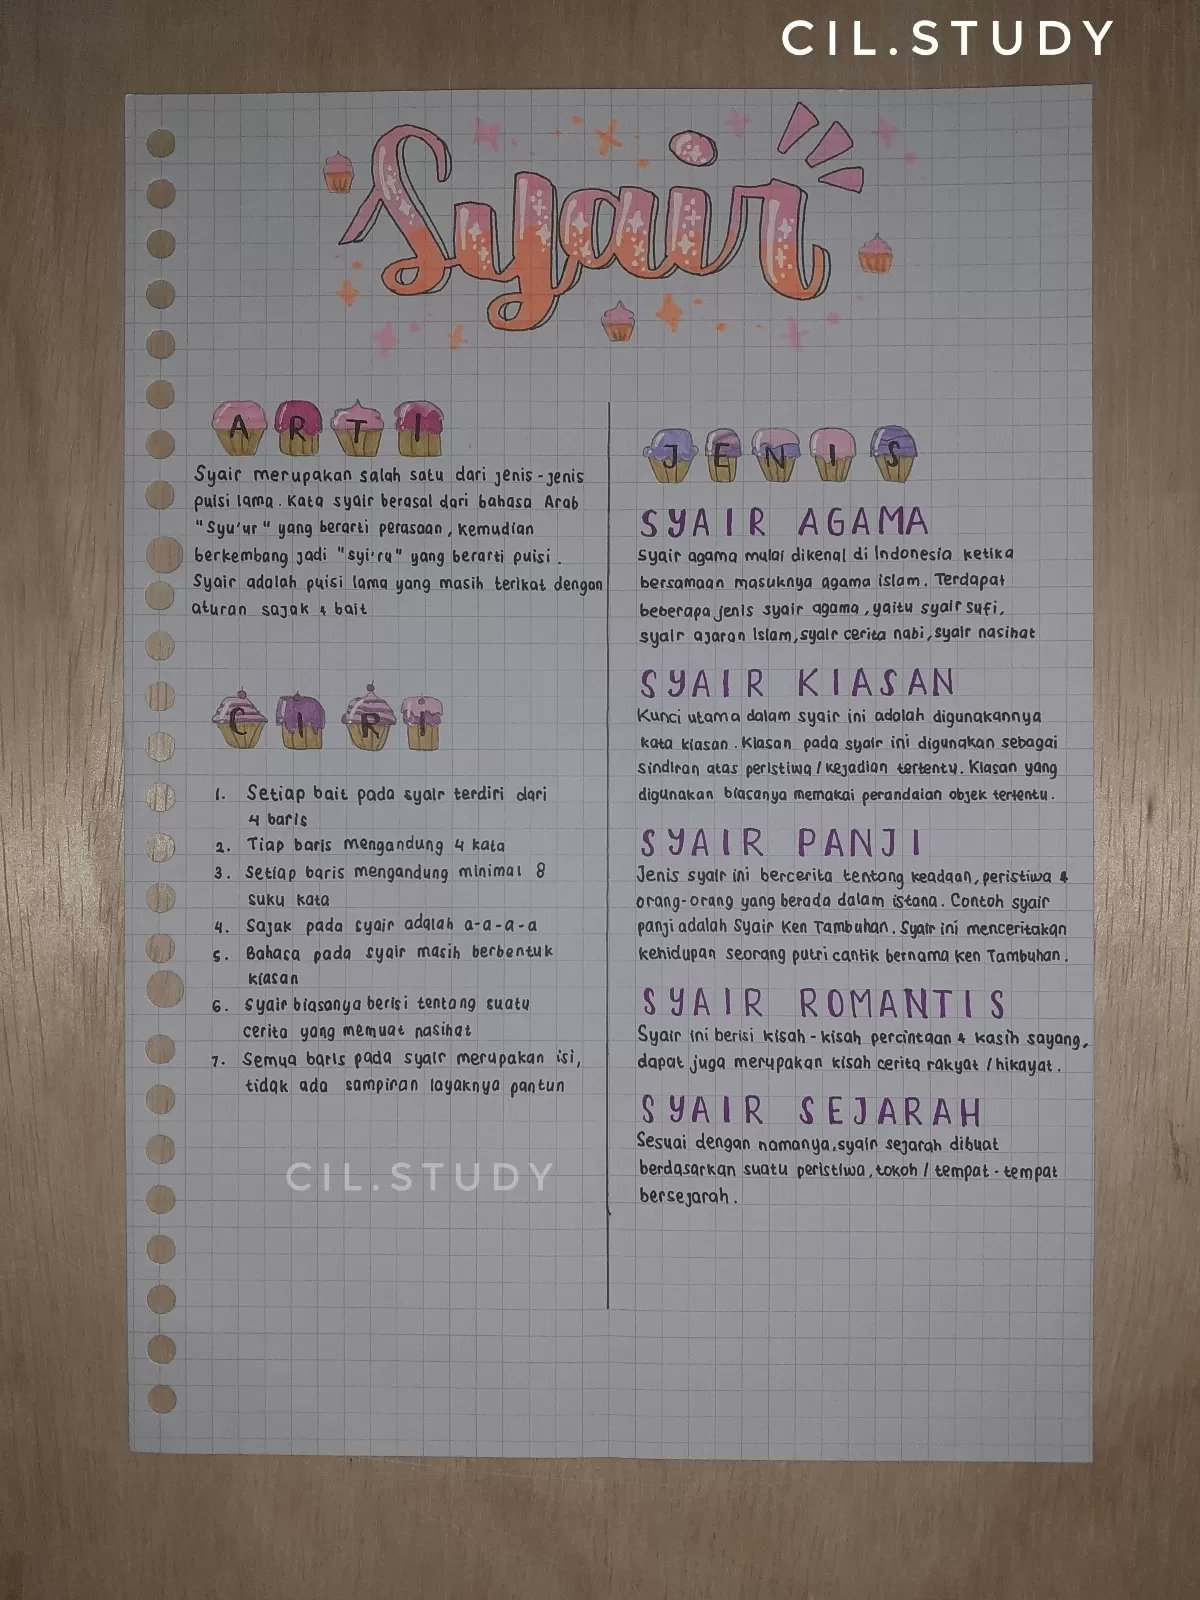 CIL.STUDY
Syair
ARTI
Syair merupakan salah satu dari jenis-jenis
puisi lama. Kata syair berasal dari bahasa Arab
"Syu'ur" yang berarti perasaan, kemudian
berkembang jadi "syi'ru" yang berarti puisi.
Syair adalah puisi lama yang masih terikat dengan
aturan sajak & bait
CIRI
1. Setiap bait pada syair terdiri dari
4 baris
2. Tiap baris mengandung 4 kata
3. Setiap baris mengandung minimal 8
suku kata
4. Sajak pada syair adalah a-a-a-a
5. Bahasa pada syair masih berbentuk
kiasan
6. Syair biasanya berisi tentang suatu
cerita yang memuat nasihat
7. Semua baris pada syair merupakan isi,
tidak ada sampiran layaknya pantun
CIL.STUDY
JENIS
SYAIR AGAMA
Syair agama mulai dikenal di Indonesia ketika
bersamaan masuknya agama islam. Terdapat
beberapa jenis syair agama, yaitu syair sufi,
syair ajaran Islam, syair cerita nabi, syair nasihat
SYAIR KIASAN
Kunci utama dalam syair ini adalah digunakannya
kata kiasan. Kiasan pada syair ini digunakan sebagai
sindiran atas peristiwa/kejadian tertentu. Kiasan yang
digunakan biasanya memakai perandaian objek tertentu.
SYAIR PANJI
Jenis syair ini bercerita tentang keadaan, peristiwa &
orang-orang yang berada dalam istana. Contoh syair
panji adalah Syair Ken Tambuhan. Syair ini menceritakan
kehidupan seorang putri cantik bernama Ken Tambuhan.
SYAIR ROMANTIS
Syair ini berisi kisah-kisah percintaan & kasih sayang,
dapat juga merupakan kisah cerita rakyat/hikayat.
SYAIR SEJARAH
Sesuai dengan namanya, syair sejarah dibuat
berdasarkan suatu peristiwa, tokoh/tempat-tempat
bersejarah.